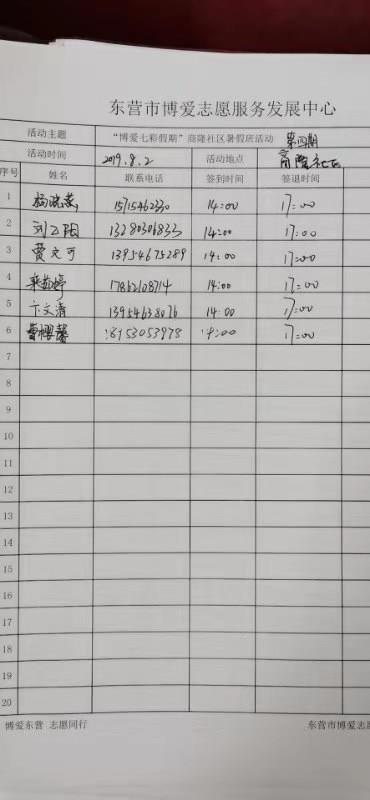 东营市博爱志愿服务发展中心
活动主题 “博爱七彩假期”商隆社区暑假班活动 第四期
活动时间 2019.8.2 活动地点 商隆社区
序号 姓名 联系电话 签到时间 签退时间
1 杨晓燕 15715462330 14:00 17:00
2 刘乙阳 13280306833 14:00 17:00
3 贾文可 13954675289 14:00 17:00
4 17862108714 14:00 17:00
5 卞文清 13954638076 14:00 17:00
6 18153053978 14:00 17:00
7
8
9
10
11
12
13
14
15
16
17
18
19
20
博爱东营 志愿同行 东营市博爱志愿